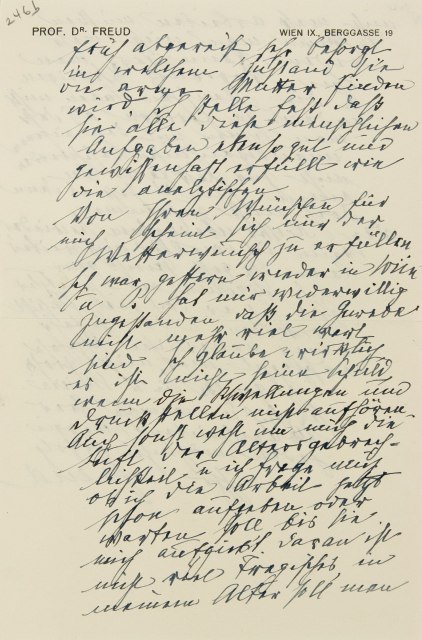 246b
PROF. DR. FREUD WIEN IX., BERGGASSE 19
früh abgereist sehr besorgt
in welchem Zustand sie
die arme Mutter finden
wird. Ich stelle fest daß
sie alle diese menschlichen
Aufgaben ebenso gut und
gewissenhaft erfüllt wie
die analytischen
Von Ihren Wünschen für
mich scheint sich nur der
Wetterwunsch zu erfüllen
Ich war gestern wieder in Wien
u P. hat mir widerwillig
zugestanden, daß die
nicht mehr viel wert
sind. Ich glaube wirklich
es ist nicht seine Schuld
wenn die Schwellungen und
Druckstellen nicht aufhören.
Auch sonst weht um mich die
Luft der Altersgebrech-
lichkeit u ich frage mich
ob ich die Arbeit jetzt
schon aufgeben oder
warten soll bis sie
mich aufgiebt. Daran ist
nicht viel Tragisches, in
meinem Alter soll man